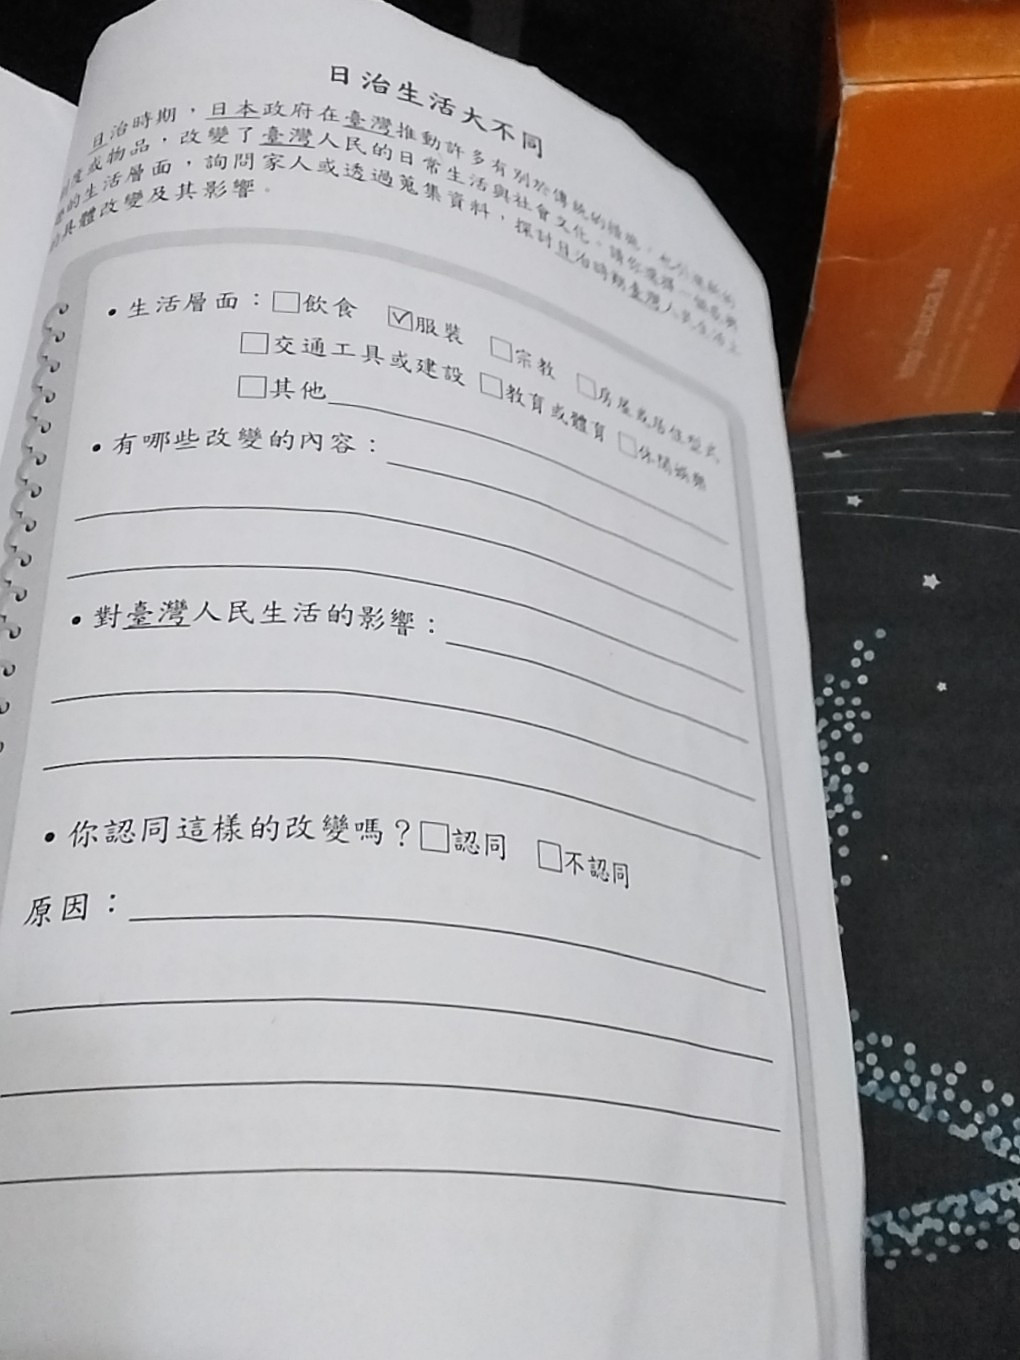 日治生活大不同
日治時期，日本政府在臺灣推動許多有別於傳統的措施，
度或物品，改變了臺灣人民的日常生活與社會文化。請你選擇一個
的生活層面，詢問家人或透過蒐集資料，探討日治時期臺灣人民生活上
具體改變及其影響。
•生活層面：□飲食 ☑服裝 □宗教 □房屋或居住型式
□交通工具或建設 □教育或體育 □休閒娛樂
□其他
•有哪些改變的內容：
•對臺灣人民生活的影響：
•你認同這樣的改變嗎？□認同 □不認同
原因：